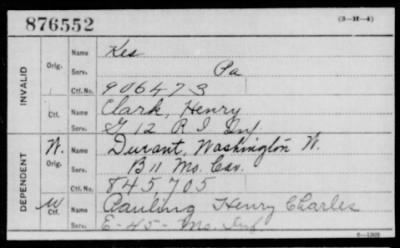 876552
(3-H-4)
INVALID
Orig.
Name Kes
Serv. Pa
Ctf. No. 906473
Ctf.
Name Clark, Henry
Serv. G 12 R I Inf
DEPENDENT
W.
Orig.
Name Durant, Washington W.
Serv. B 11 Mo. Cav.
Ctf. No. 845,705
W
Ctf.
Name Pauling Henry Charles
Serv. E-45- Mo. Inf